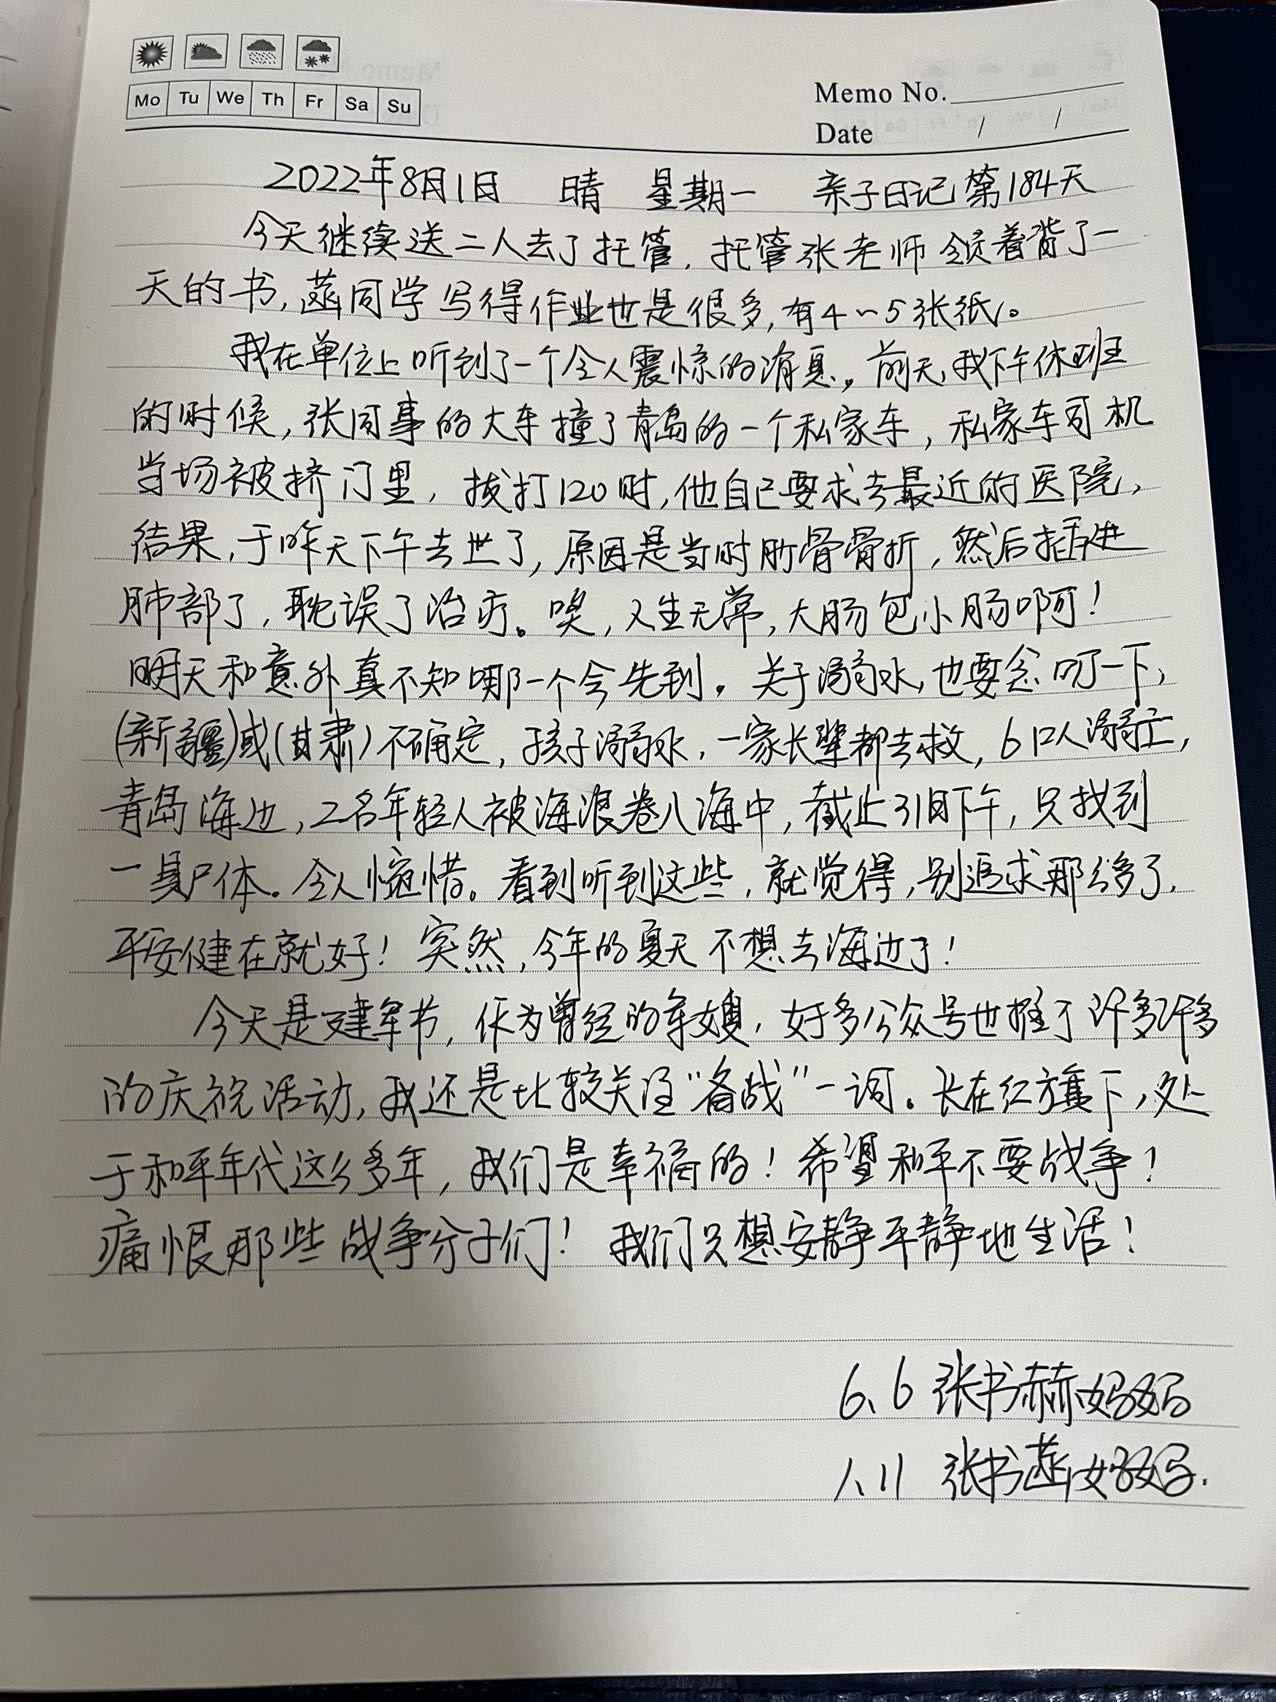 Mo Tu We Th Fr Sa Su
Memo No.
Date / /
2022年8月1日 晴 星期一 亲子日记第184天
今天继续送二人去了托管，托管张老师领着背了一
天的书，菡同学写得作业也是很多，有4~5张纸。
我在单位上听到了一个令人震惊的消息，前天，我下午休班
的时候，张同事的大车撞了青岛的一个私家车，私家车司机
当场被挤门里，拨打120时，他自己要求去最近的医院，
结果，于昨天下午去世了，原因是当时肋骨骨折，然后插进
肺部了，耽误了治疗。唉，人生无常，大肠包小肠啊！
明天和意外真不知哪一个会先到。关于溺水，也要念叨一下，
(新疆)或(甘肃)不确定，孩子溺水，一家长辈都去救，6口人溺亡，
青岛海边，2名年轻人被海浪卷入海中，截止31日下午，只找到
一具尸体。令人惋惜。看到听到这些，就觉得，别追求那么多了，
平安健在就好！突然，今年的夏天不想去海边了！
今天是建军节，作为曾经的军嫂，好多公众号也推了许多许多
的庆祝活动，我还是比较关注“备战”一词。长在红旗下，处
于和平年代这么多年，我们是幸福的！希望和平不要战争！
痛恨那些战争分子们！我们只想安静平静地生活！
6.6 张书赫妈妈
1.11 张书菡妈妈.